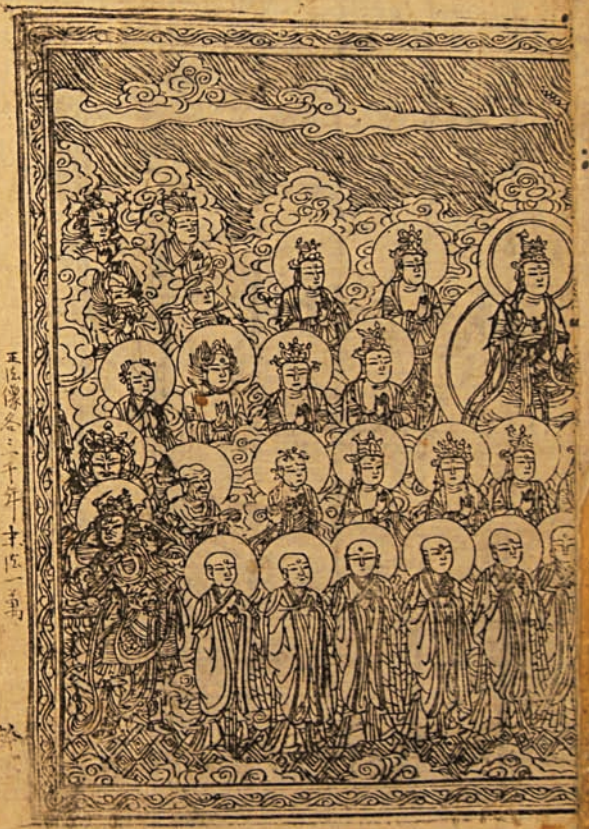 正法像合三千年 末法一萬